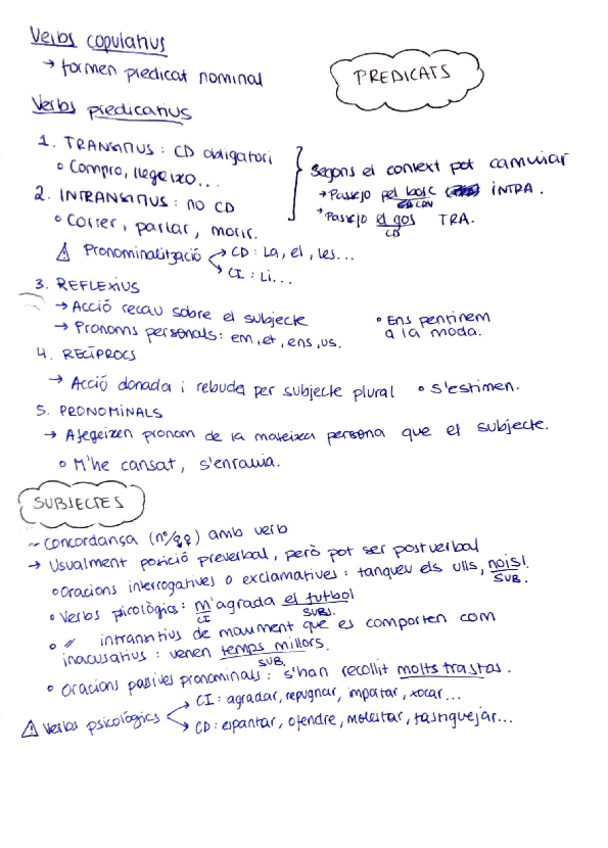 Verbs copulatius
→ formen predicat nominal
PREDICATS
Verbs predicatius
1. TRANSITIUS: CD obligatori
• Compro, llegeixo...
2. INTRANSITIUS: no CD
• Correr, parlar, morir.
Segons el context pot canviar
→ Passejo pel bosc INTRA.
CCN
→ Passejo el gos TRA.
CD
⚠ Pronominalització → CD: La, el, les...
→ CI: Li...
3. REFLEXIUS
→ Acció recau sobre el subjecte
→ Pronoms personals: em, et, ens, us.
• Ens pentinem
a la moda.
4. RECÍPROCS
→ Acció donada i rebuda per subjecte plural • s'estimen.
5. PRONOMINALS
→ Afegeixen pronom de la mateixa persona que el subjecte.
• M'he cansat, s'enravia.
SUBJECTES
~ Concordança (nº/♀♀) amb verb
→ Usualment posició preverbal, però pot ser postverbal
• Oracions interrogatives o exclamatives: tanqueu els ulls, nois!
SUB.
• Verbs psicològics: m'agrada el futbol
CI SUBJ.
• " intransitius de moviment que es comporten com
inacusatius: venen temps millors.
SUB.
• Oracions passives pronominals: s'han recollit molts trastos.
⚠ Verbs psicològics → CI: agradar, repugnar, importar, xocar...
→ CD: espantar, ofendre, molestar, fastiguejar...